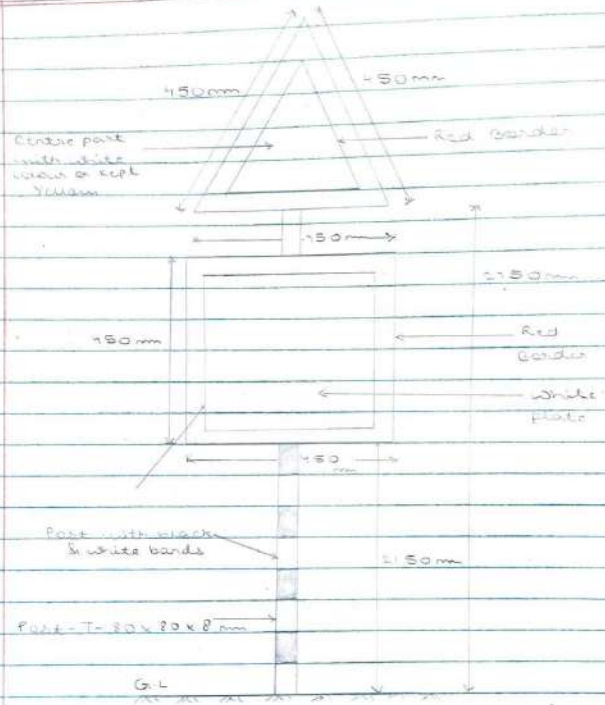 450mm
450mm
Centre part
with white
colour or kept
Red Border
450mm
450mm
Red
Border
White
Plate
450
mm
Post with black
& white bands
2150mm
Post-T-80x80x8mm
G.L